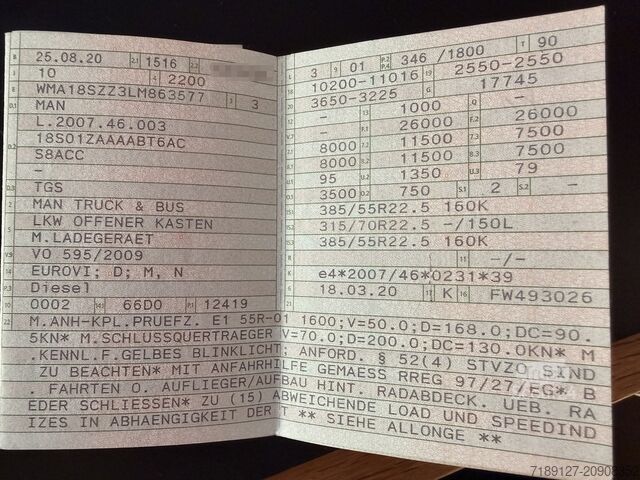 B 25.08.20 2.1 1516 2.2
J 10 4 2200
E WMA18SZZ3LM863577 3 3
D.1 MAN
L.2007.46.003
D.2 18S01ZAAAABT6AC
S8ACC
-
D.3 TGS
2 MAN TRUCK & BUS
5 LKW OFFENER KASTEN
M.LADEGERAET
V.9 VO 595/2009
14 EUROVI; D; M, N
P.3 Diesel
10 0002 14.1 66D0 P.1 12419
L 3 9 01 P.2 P.4 346 /1800 T 90
18 10200-11016 19 2550-2550
20 3650-3225 G 17745
12 - 13 1000 Q -
V.7 - F.1 26000 F.2 26000
7.1 8000 7.2 11500 7.3 7500
8.1 8000 8.2 11500 8.3 7500
U.1 95 U.2 1350 U.3 79
O.1 3500 O.2 750 S.1 2 S.2 -
15.1 385/55R22.5 160K
15.2 315/70R22.5 -/150L
15.3 385/55R22.5 160K
R 11 -/-
K e4*2007/46*0231*39
6 18.03.20 17 K 16 FW493026
21
22 M.ANH-KPL.PRUEFZ. E1 55R-01 1600;V=50.0;D=168.0;DC=90.
5KN* M.SCHLUSSQUERTRAEGER V=70.0;D=200.0;DC=130.0KN* M
.KENNL.F.GELBES BLINKLICHT; ANFORD. § 52(4) STVZO SIND
ZU BEACHTEN* MIT ANFAHRHILFE GEMAESS RREG 97/27/EG* B
. FAHRTEN O. AUFLIEGER/AUFBAU HINT. RADABDECK. UEB. RA
EDER SCHLIESSEN* ZU (15) ABWEICHENDE LOAD UND SPEEDIND
IZES IN ABHAENGIGKEIT DER T ** SIEHE ALLONGE **